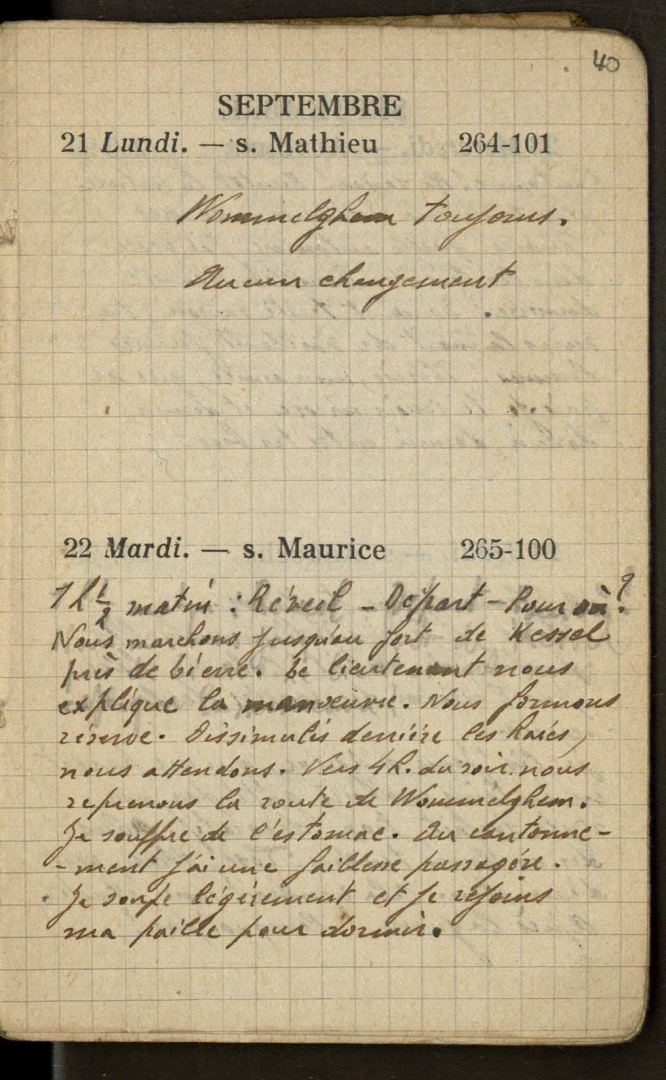 40
SEPTEMBRE
21 Lundi. — s. Mathieu 264-101
Wommelghem toujours.
Aucun changement
22 Mardi. — s. Maurice 265-100
1 h 1/2 matin : Réveil - Départ - Pour où ?
Nous marchons jusqu'au fort de Kessel
près de Lierre. Le lieutenant nous
explique la manœuvre. Nous formons
réserve. Dissimulés derrière les haies,
nous attendons. Vers 4h. du soir nous
reprenons la route de Wommelghem.
Je souffre de l'estomac. Au cantonne-
-ment j'ai une faiblesse passagère.
Je soupe légèrement et je rejoins
ma paille pour dormir.